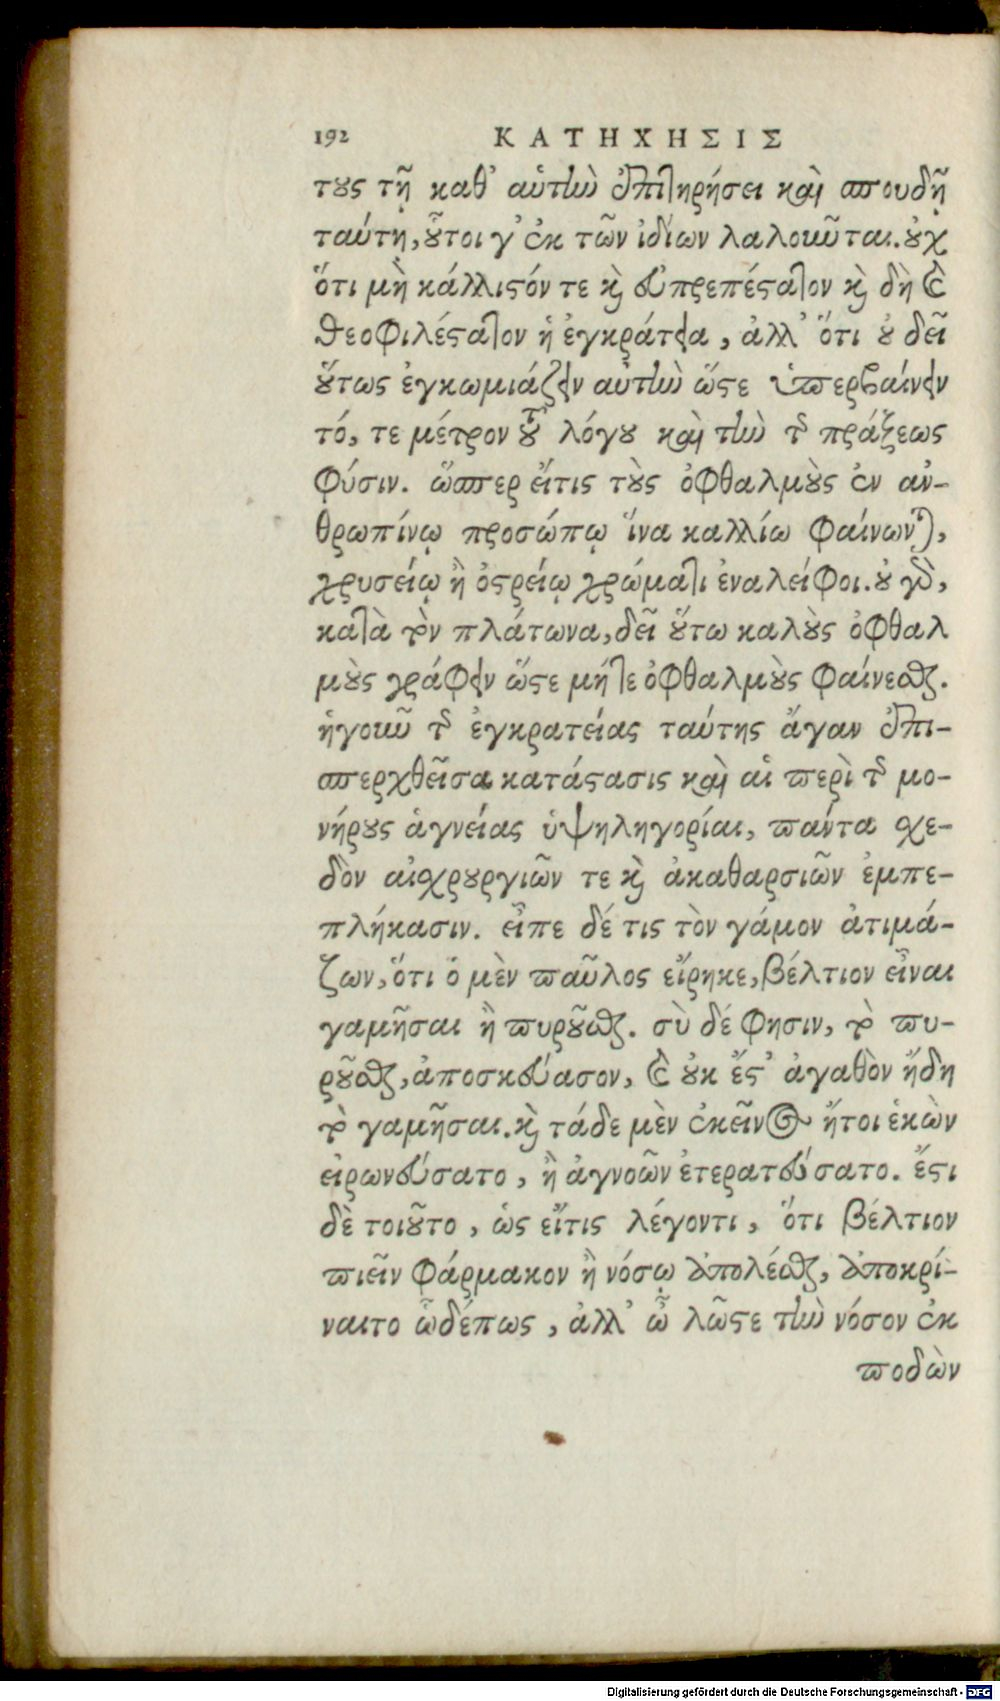 192 ΚΑΤΗΧΗΣΙΣ
τους τῇ καθ' αὑτὴν ἐπιτηρήσει καὶ σπουδῇ
ταύτῃ, οὗτοι γ' ἐκ τῶν ἰδίων λαλοῦνται. οὐχ
ὅτι μὴ κάλλιστόν τε καὶ εὐπρεπέστατον καὶ δὴ καὶ
θεοφιλέστατον ἡ ἐγκράτεια, ἀλλ' ὅτι οὐ δεῖ
οὕτως ἐγκωμιάζειν αὐτὴν ὥστε ὑπερβαίνειν
τό, τε μέτρον τοῦ λόγου καὶ τὴν τῆς πράξεως
φύσιν. ὥσπερ εἴτις τοὺς ὀφθαλμοὺς ἐν ἀν-
θρωπίνῳ προσώπῳ ἵνα καλλίω φαίνωνται,
χρυσείῳ ἢ ὀστρείῳ χρώματι ἐναλείφοι. οὐ γὰρ,
κατὰ τὸν πλάτωνα, δεῖ οὕτω καλοὺς ὀφθαλ
μοὺς γράφειν ὥστε μήτε ὀφθαλμοὺς φαίνεσθαι.
ἡγοῦν τῆς ἐγκρατείας ταύτης ἄγαν ἐπι-
σπερχθεῖσα κατάστασις καὶ αἱ περὶ τῆς μο-
νήρους ἁγνείας ὑψηληγορίαι, πάντα σχε-
δὸν αἰσχρουργιῶν τε καὶ ἀκαθαρσιῶν ἐμπε-
πλήκασιν. εἶπε δέ τις τὸν γάμον ἀτιμά-
ζων, ὅτι ὁ μὲν παῦλος εἴρηκε, βέλτιον εἶναι
γαμῆσαι ἢ πυροῦσθαι. σὺ δέ φησιν, τὸ πυ-
ροῦσθαι, ἀποσκεύασον, καὶ οὐκ ἔστ' ἀγαθὸν ἤδη
τὸ γαμῆσαι. καὶ τάδε μὲν ἐκεῖνος ἤτοι ἑκὼν
εἰρωνεύσατο, ἢ ἀγνοῶν ἑτερατεύσατο. ἔστι
δὲ τοιοῦτο, ὡς εἴτις λέγοντι, ὅτι βέλτιον
πιεῖν φάρμακον ἢ νόσῳ ἀπολέσθαι, ἀποκρί-
ναιτο ὧδέπως, ἀλλ' ὦ λῶστε τὴν νόσον ἐκ
ποδὼν
Digitalisierung gefördert durch die Deutsche Forschungsgemeinschaft - DFG